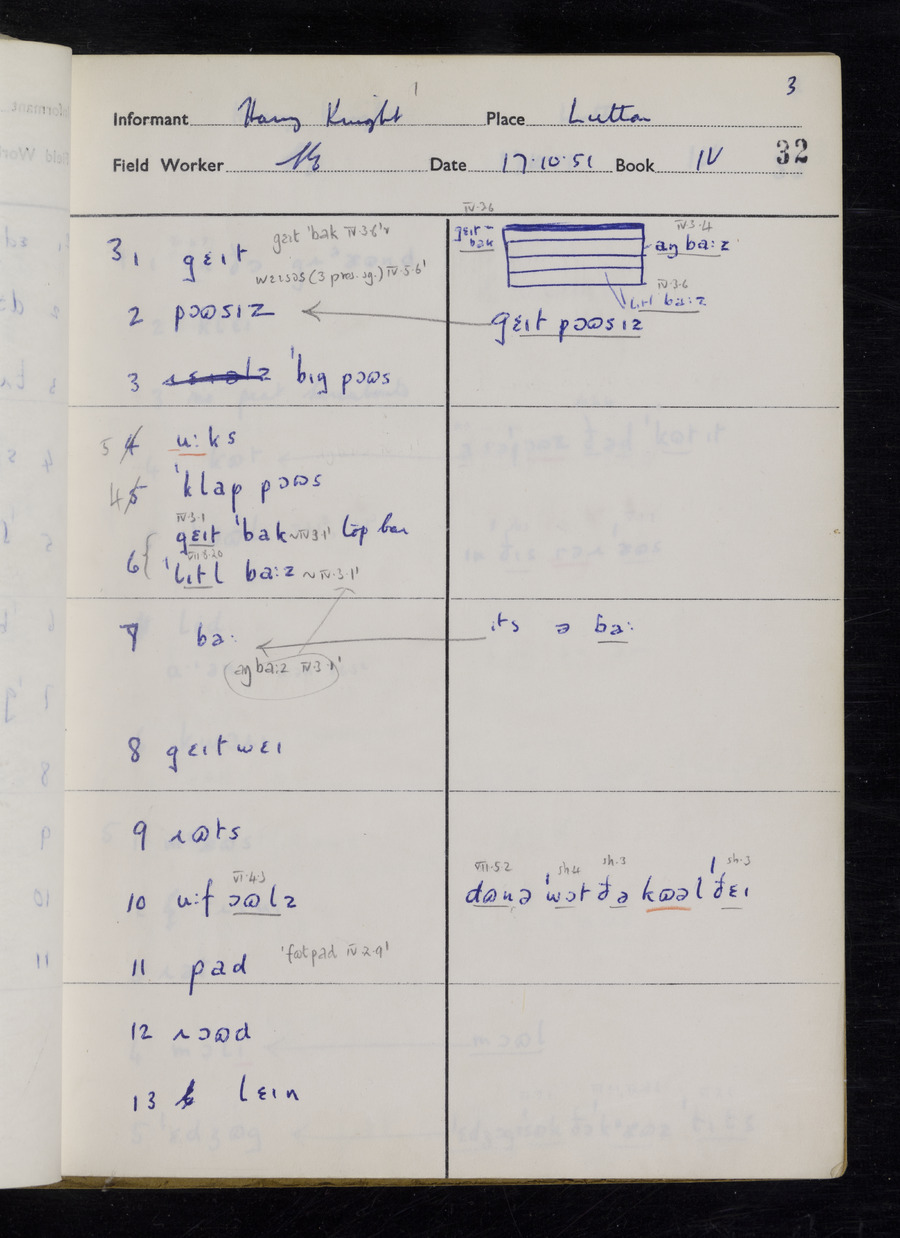 3
Informant Harry Knight Place Lutton
Field Worker Date 17.10.51 Book IV 32
3 1 gɛɪt gɛɪt ˈbak IV·3·6'
(3 pres. sg.) IV·5·6'
2 pɔɷsɪz
3 ˈbɪg pɔɷs
5 4 u:ks
4 5 ˈklap pɔɷs
IV·3·1
gɛɪt ˈbak ~IV·3·1' top bar
VII·8·20
6 ˈlɪtl ba:z ~ IV·3·1'
7 ba:
aŋ ba:z IV·3·1'
8 gɛɪt wɛɪ
9 ɹɷts
VI·4·3
10 u:f ɔɷlz
11 pad ˈfɷtpad IV·2·9'
12 ɹɔɷd
13 lɛɪn
IV·2·6
gɛɪt ~ bak
IV·3·4
aŋ ba:z
IV·3·6
lɪtl ba:z
gɛɪt pɔɷsɪz
ɪts ə ba:
VII·5·2 sh.4 sh.3 sh.3
dɷnə ˈwɔt ðə kɷəl ˈðɛɪ